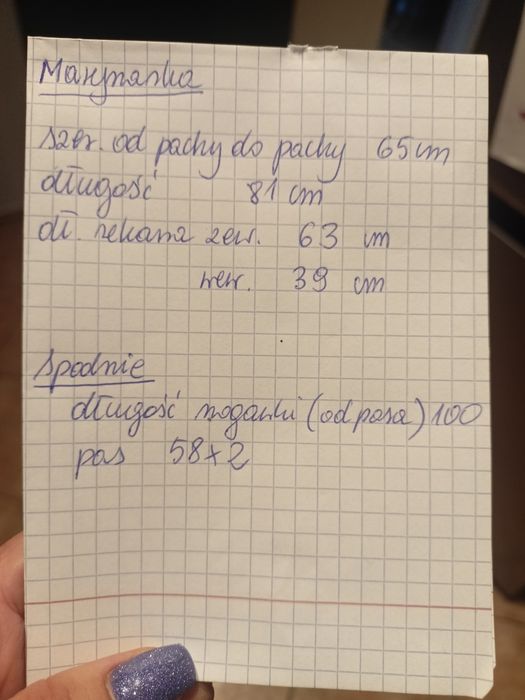 Marynarka
szer. od pachy do pachy 65 cm
długość 81 cm
dł. rękawa zew. 63 cm
wew. 39 cm
Spodnie
długość nogawki (od pasa) 100
pas 58x2